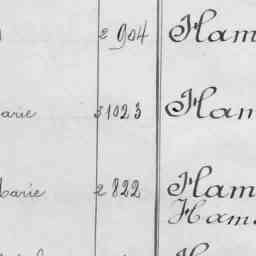 2 904 Ham
arie 31023 Ham
arie 2 822 Ham
Ham